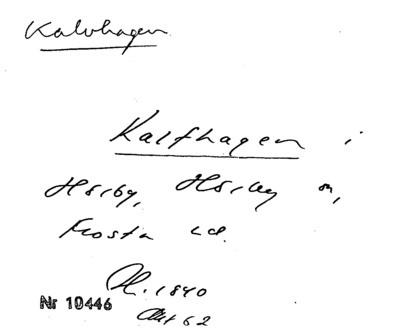 Kalvhagen
Kalfhagen i
Hörby, Hörby sn,
Frosta hd.
Nr 10446
1840
Akt 62